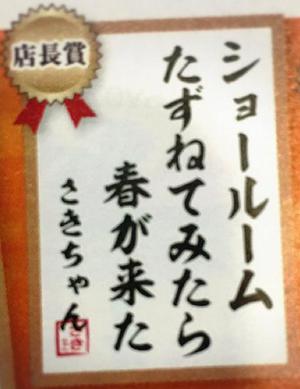 店長賞
ショールーム
たずねてみたら
春が来た
さきちゃん
さき